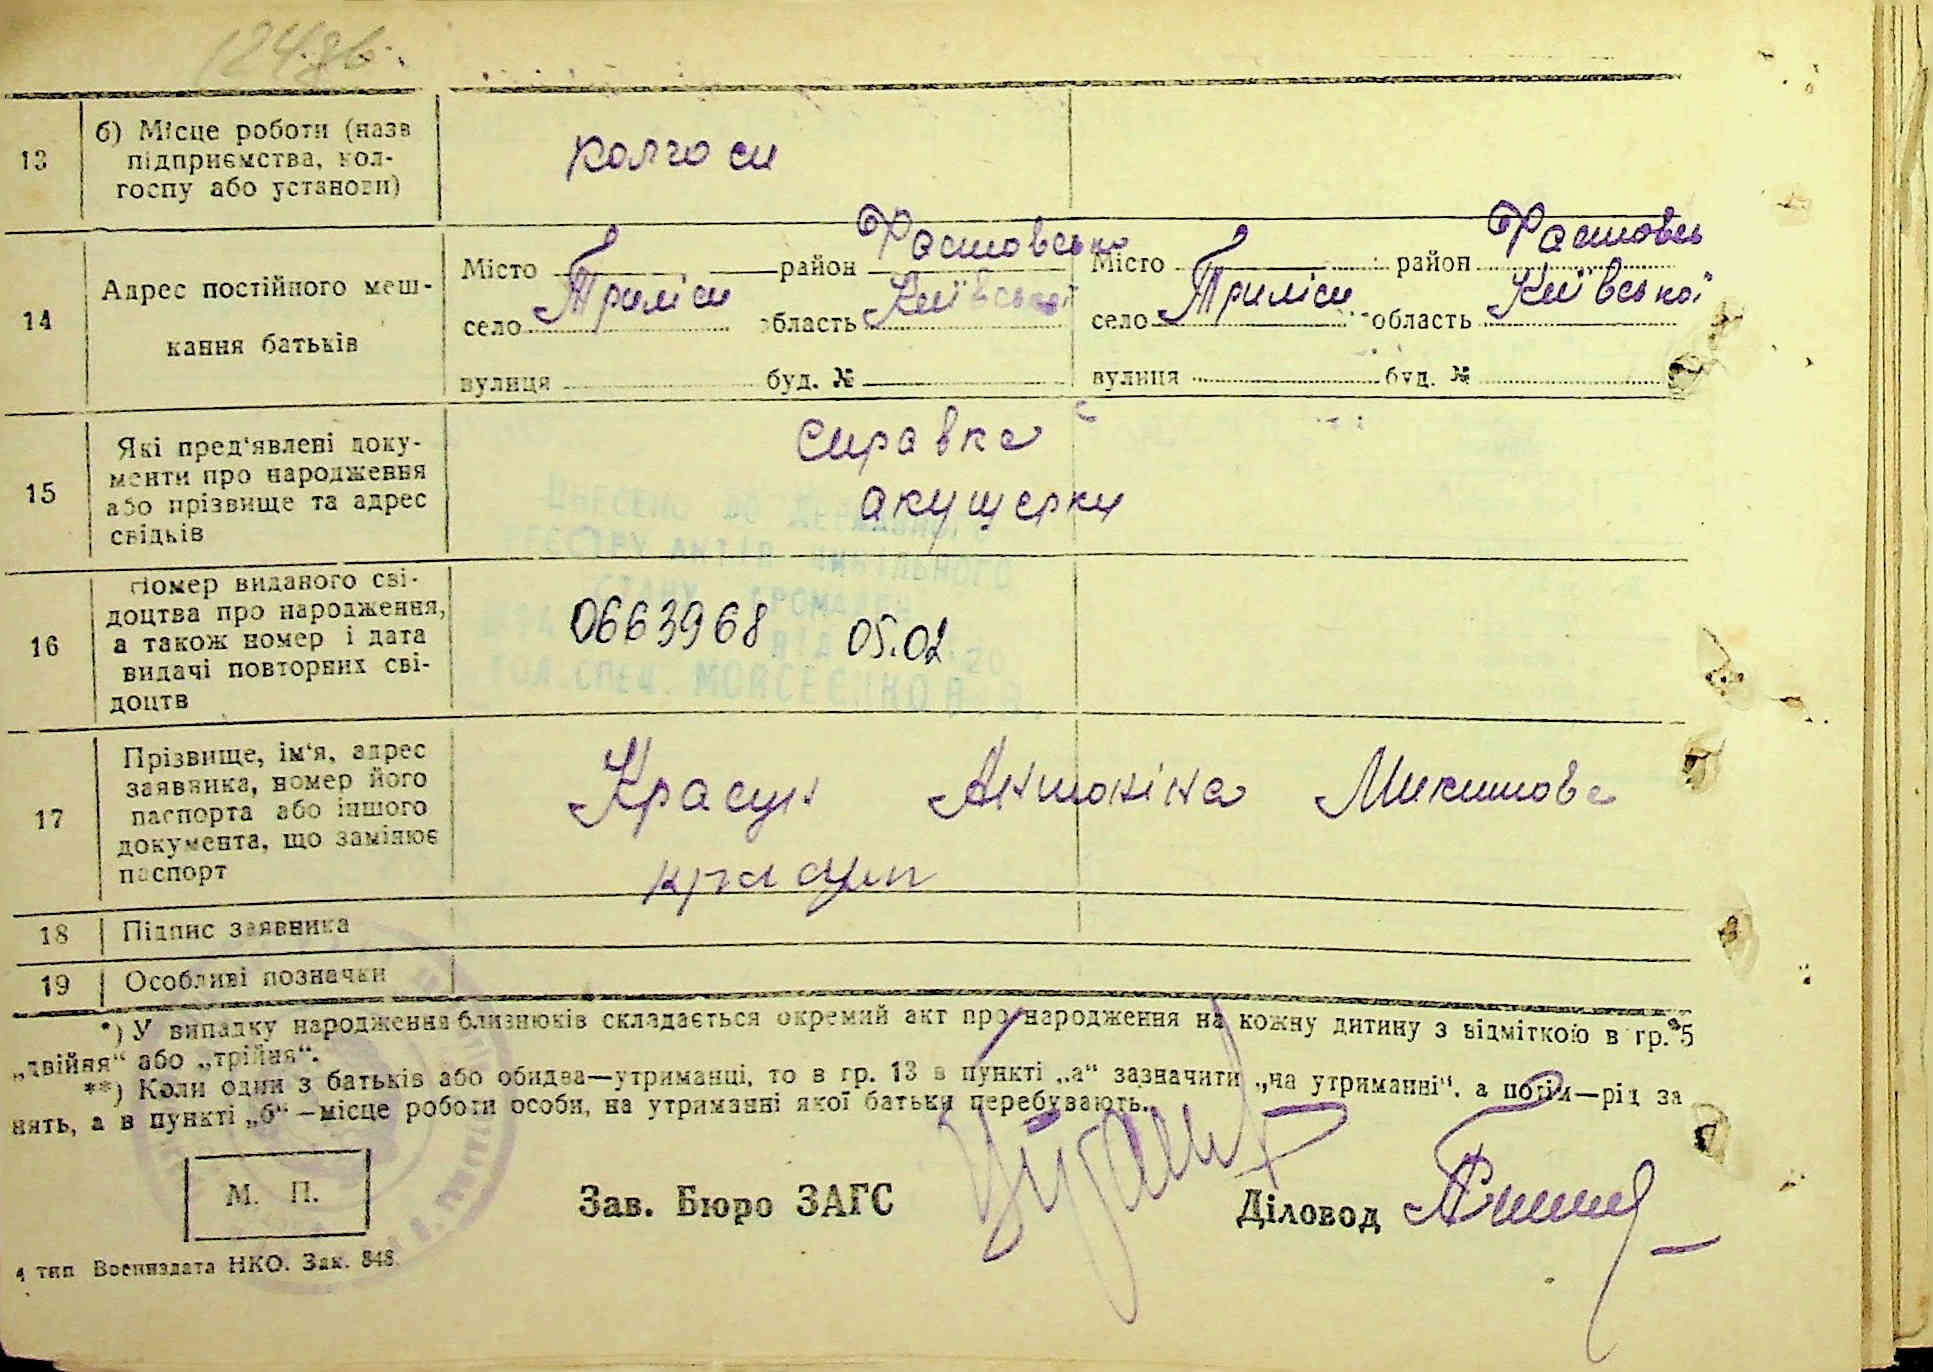 13
б) Місце роботи (назв
підприємства, кол-
госпу або установи)
колгосп
14
Адрес постійного меш-
кання батьків
Місто район Фастовсько
село Триліси область Київської
вулиця буд. №
Місто район Фастовсь
село Триліси область Київської
вулиця буд. №
15
Які пред'явлені доку-
менти про народження
або прізвище та адрес
свідків
справка
акушерки
ВНЕСЕНО ДО ДЕРЖАВНОГО
РЕЄСТРУ АКТІВ ЦИВІЛЬНОГО
СТАНУ ГРОМАДЯН
ВІД 20
ГОЛ.СПЕЦ. МОЙСЕЄНКО В.
16
Номер виданого сві-
доцтва про народження,
а також номер і дата
видачі повторних сві-
доцтв
0663968 05.02
17
Прізвище, ім'я, адрес
заявника, номер його
паспорта або іншого
документа, що замінює
паспорт
Красун Антоніна Микитова
красун
18 Підпис заявника
19 Особливі позначки
*) У випадку народження близнюків складається окремий акт про народження на кожну дитину з відміткою в гр. 5
„двійня“ або „трійня“.
**) Коли один з батьків або обидва—утриманці, то в гр. 13 в пункті „а“ зазначити „на утриманні“, а потім—рід за
нять, а в пункті „б“—місце роботи особи, на утриманні якої батьки перебувають.
М. П.
Зав. Бюро ЗАГС
Діловод
4 тип Воениздата НКО. Зак. 848.